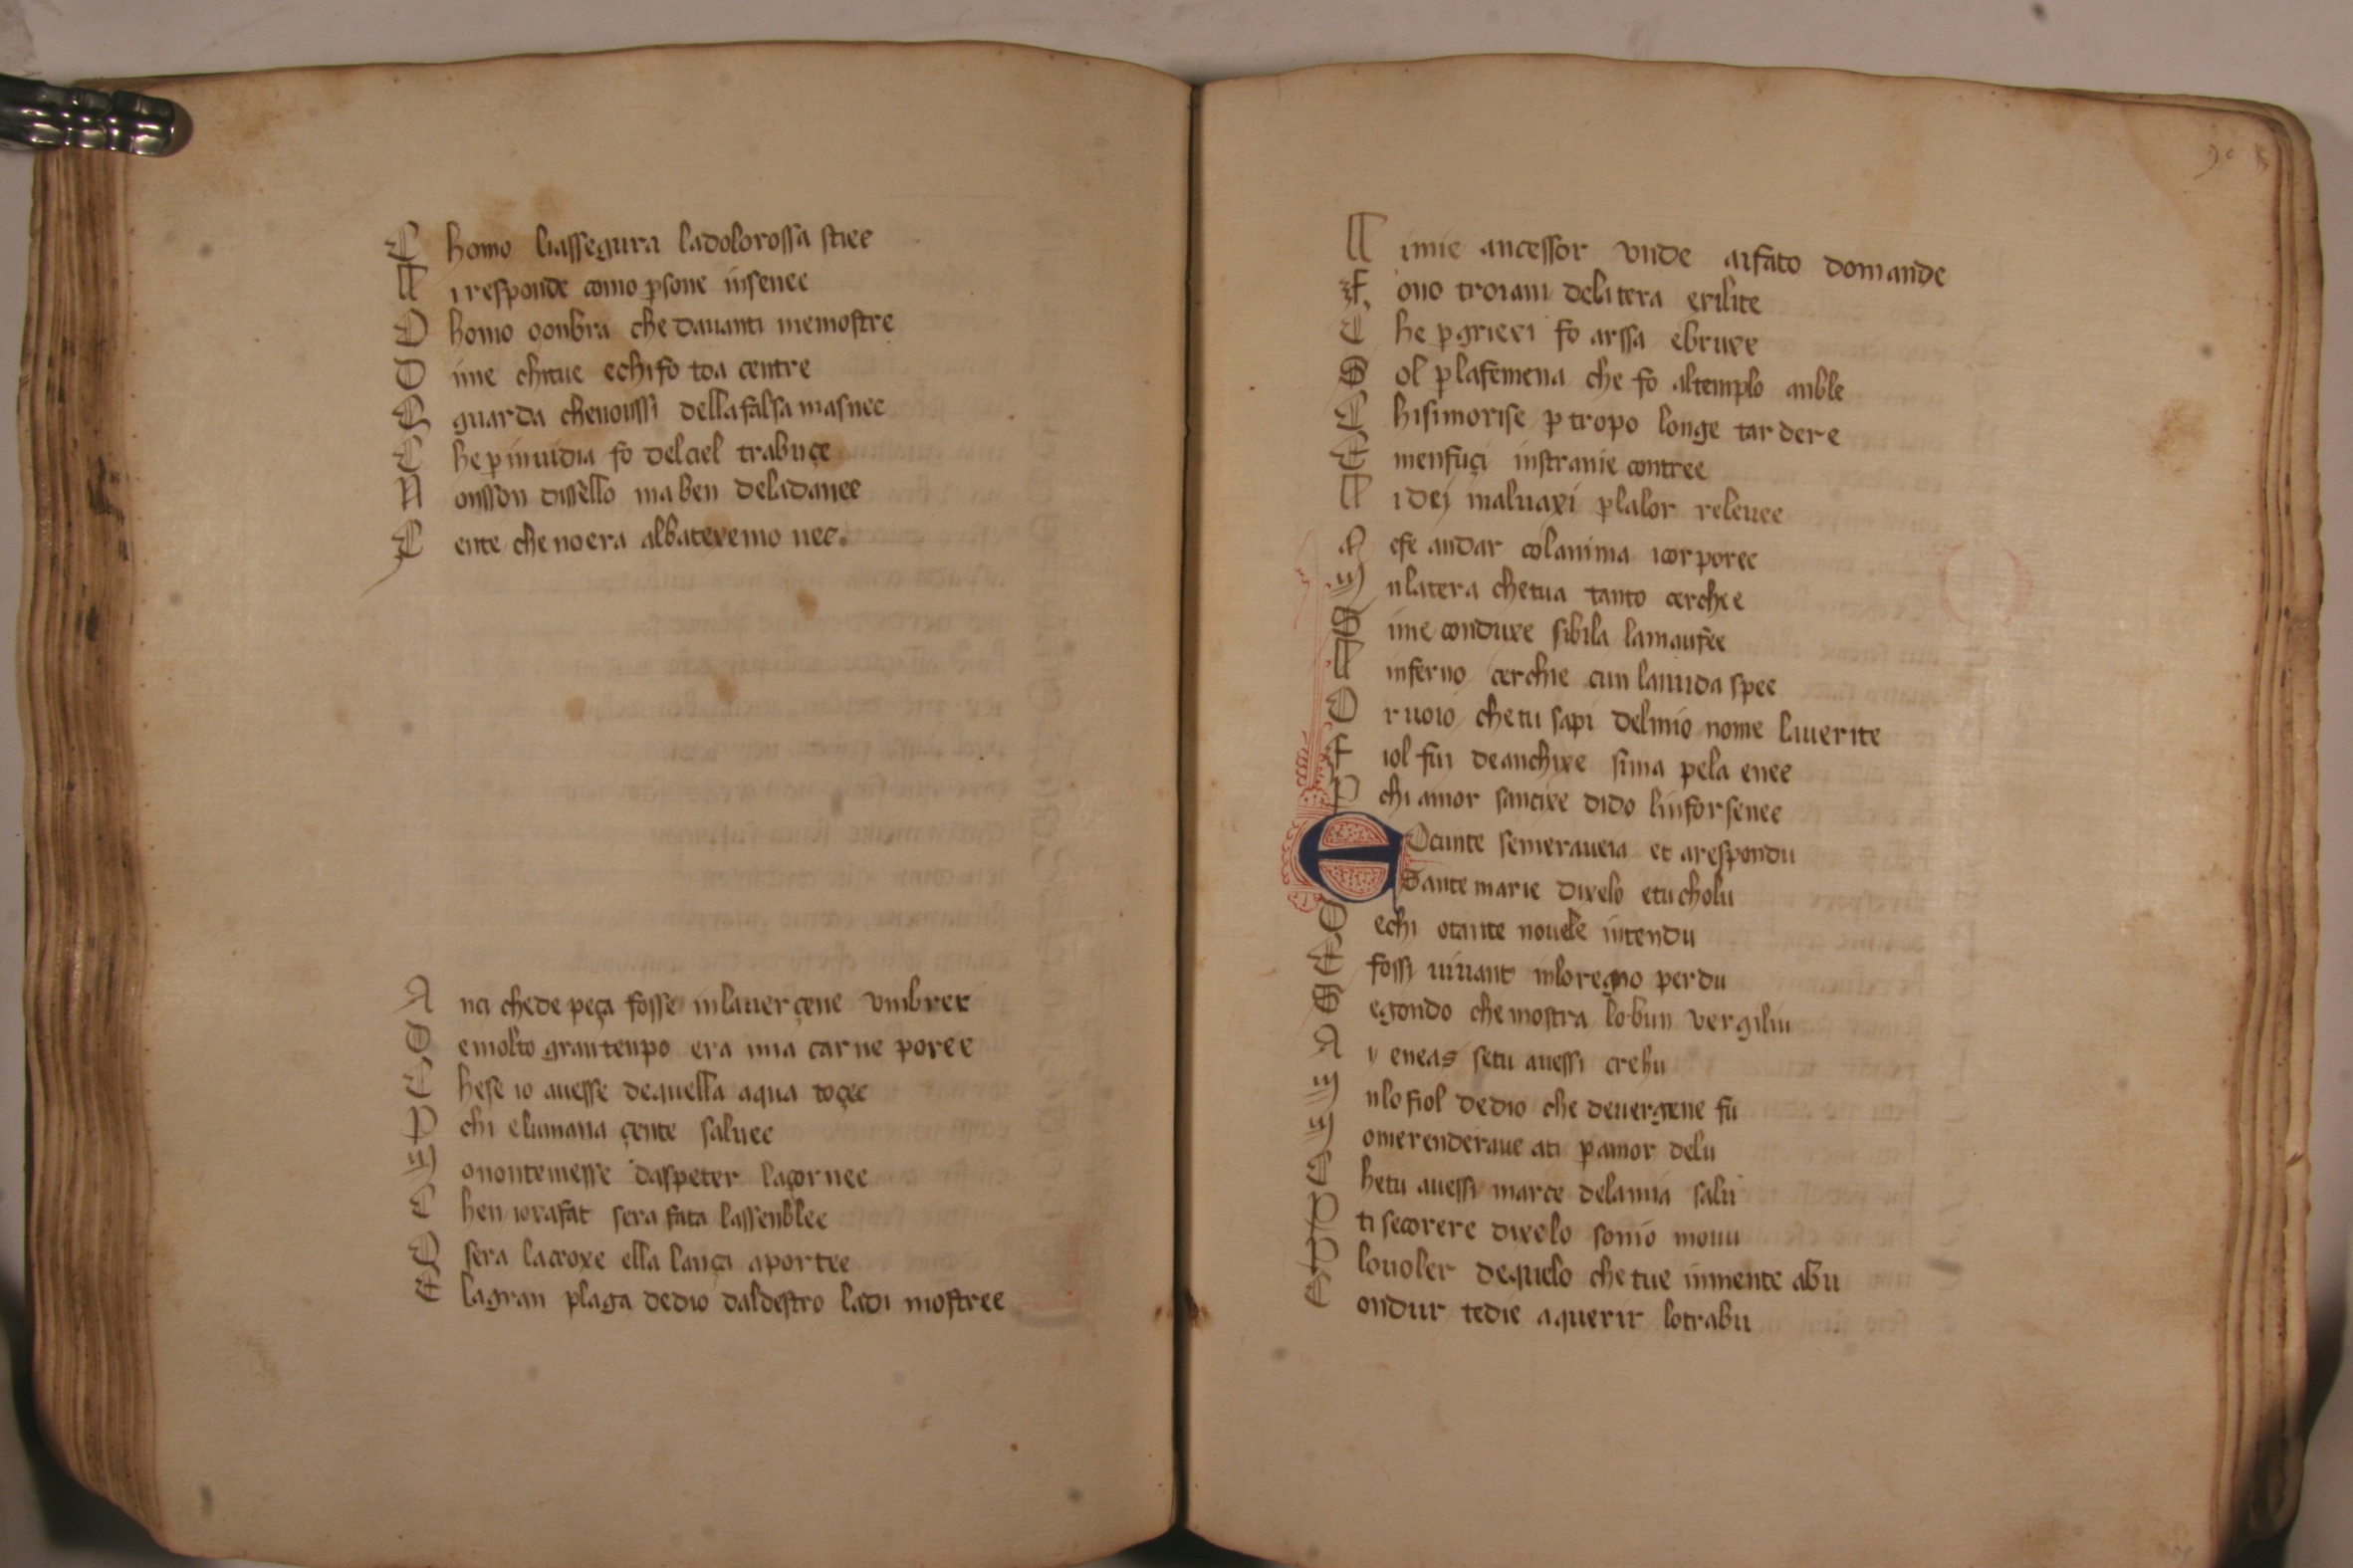 C homo liassegura ladolorossa stree
LI responde como psone insenee
O homo oonbra che davanti memostre
D ime chitue echifo toa centre
E guarda chenoussi dellafalsa masnee
C he p inuidia fo delciel trabuçe
N onsson dissello ma ben deladanee
C ente che no era albatexemo nee.
A nci chede peça fosse inlauerçene umbree
D emolto grantenpo era mia carne poree
C hese io auesse dequella aqua toçee
P chi elumana çente saluee
M onontemesse daspeter laçornee
C hen ioxafat sera fata lassenblee
O sera lacroxe ella lança aportee
E lagran plaga dedio daldestro ladi mostree
LI imie ancessor unde aifato domande
F ono troiani delatera erilite
C he p griexi fo arssa ebruxe
S ol p lafemena che fo altemplo anble
C hisimorise p tropo longe tardere
E menfuçi instranie contree
LI idei maluaxi p lalor releuee
A efe andar colanima icorporee
M nlatera chetua tanto cerchee
S ime conduxe sibila lamaufee
LI inferno cerchie cun lanuda spee
O ruoio che tu sapi delmio nome liuerite
F iol fui deanchixe sima pela enee
P chi amor sancixe dido linforsenee
E Dcunte semeraueia et arespondu
Sante marie dixelo etucholu
D echi otante nouele intendu
E fossi uiuant inloregno perdu
S egondo chemostra lobun vergiliu
A y eneas setu auessi crehu
M nlo fiol dedio che deuergene fu
M omerenderaue ati p amor delu
C hetu auessi marce delamia salu
P ti secorere dixelo sonio mouu
P louoler dequelo che tue inmente abu
C ondur tedie aquerir lotrabu